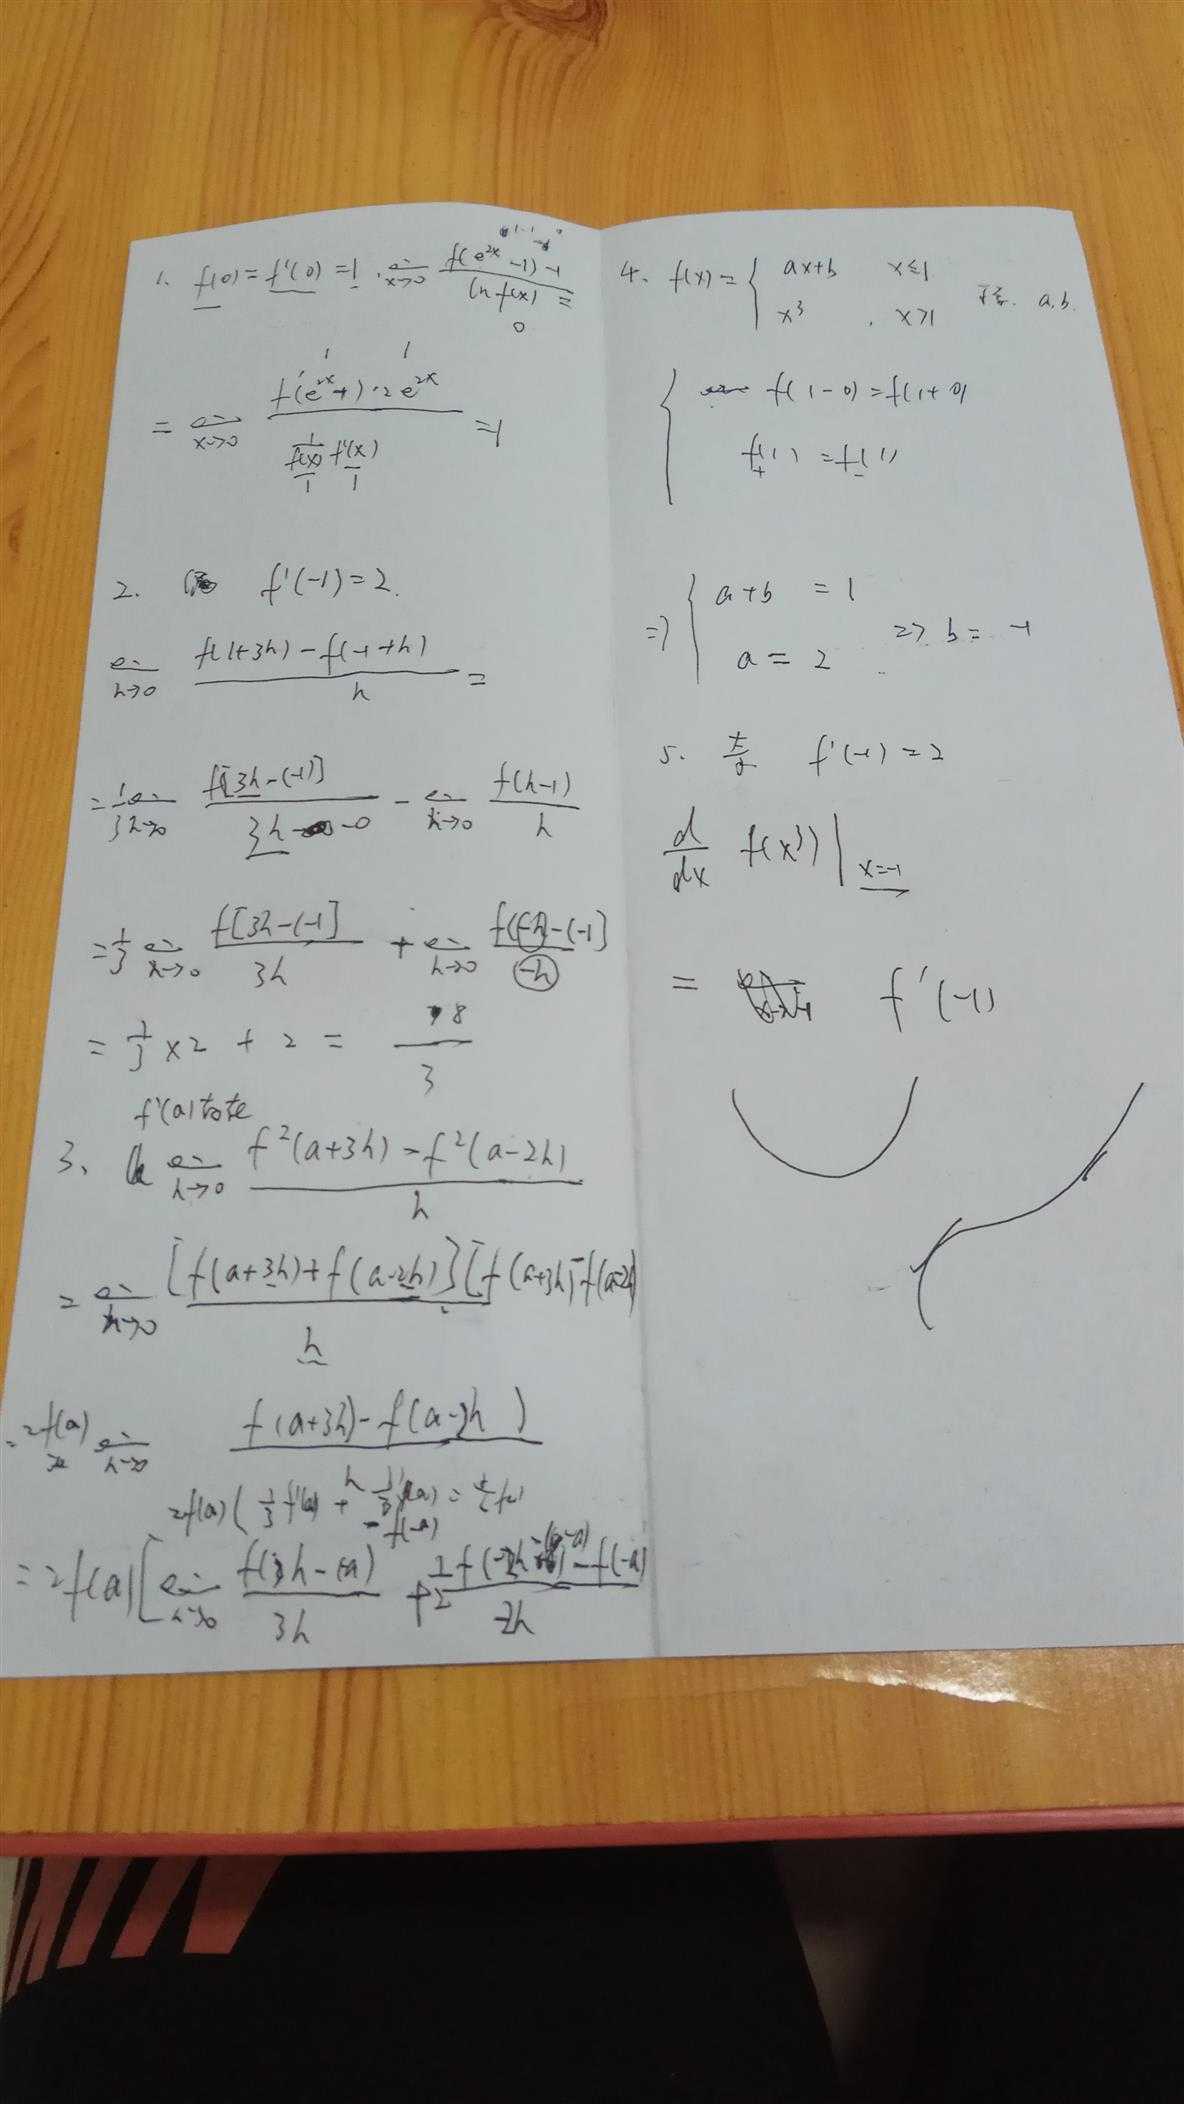 1. f(0) = f'(0) = 1 . lim x→0 f(e^2x -1) -1 / ln f(x) =
0
1 1
= lim x→0 f'(e^2x -1)·2e^2x / 1/f(x) f'(x) = 1
1 1
2. f'(-1) = 2.
lim h→0 f(-1+3h) - f(-1+h) / h =
= 1/3 lim h→0 f[3h-(-1)] / 3h - 0 - lim h→0 f(h-1) / h
= 1/3 lim h→0 f[3h-(-1] / 3h + lim h→0 f(-h)-(-1] / -h
= 1/3 × 2 + 2 = 8 / 3
f'(a)存在
3. lim h→0 f²(a+3h) - f²(a-2h) / h
= lim h→0 [f(a+3h) + f(a-2h)][f(a+3h) - f(a-2h) / h
= 2f(a) lim h→0 f(a+3h) - f(a-2h) / h
2f(a) ( 1/3 f'(a) +
- f(-a)
= 2f(a) [ lim h→0 f(3h-(-a) / 3h + 1/2 f(-2h-(-a) - f(-a) / -2h
4. f(x) = { ax+b x≤1
x³ , x>1 a, b.
{ f(1-0) = f(1+0)
f'+(1) = f'-(1)
=> { a+b = 1
a = 2 => b = -1
5. f'(-1) = 2
d/dx f(x³) | x=-1
= f'(-1)